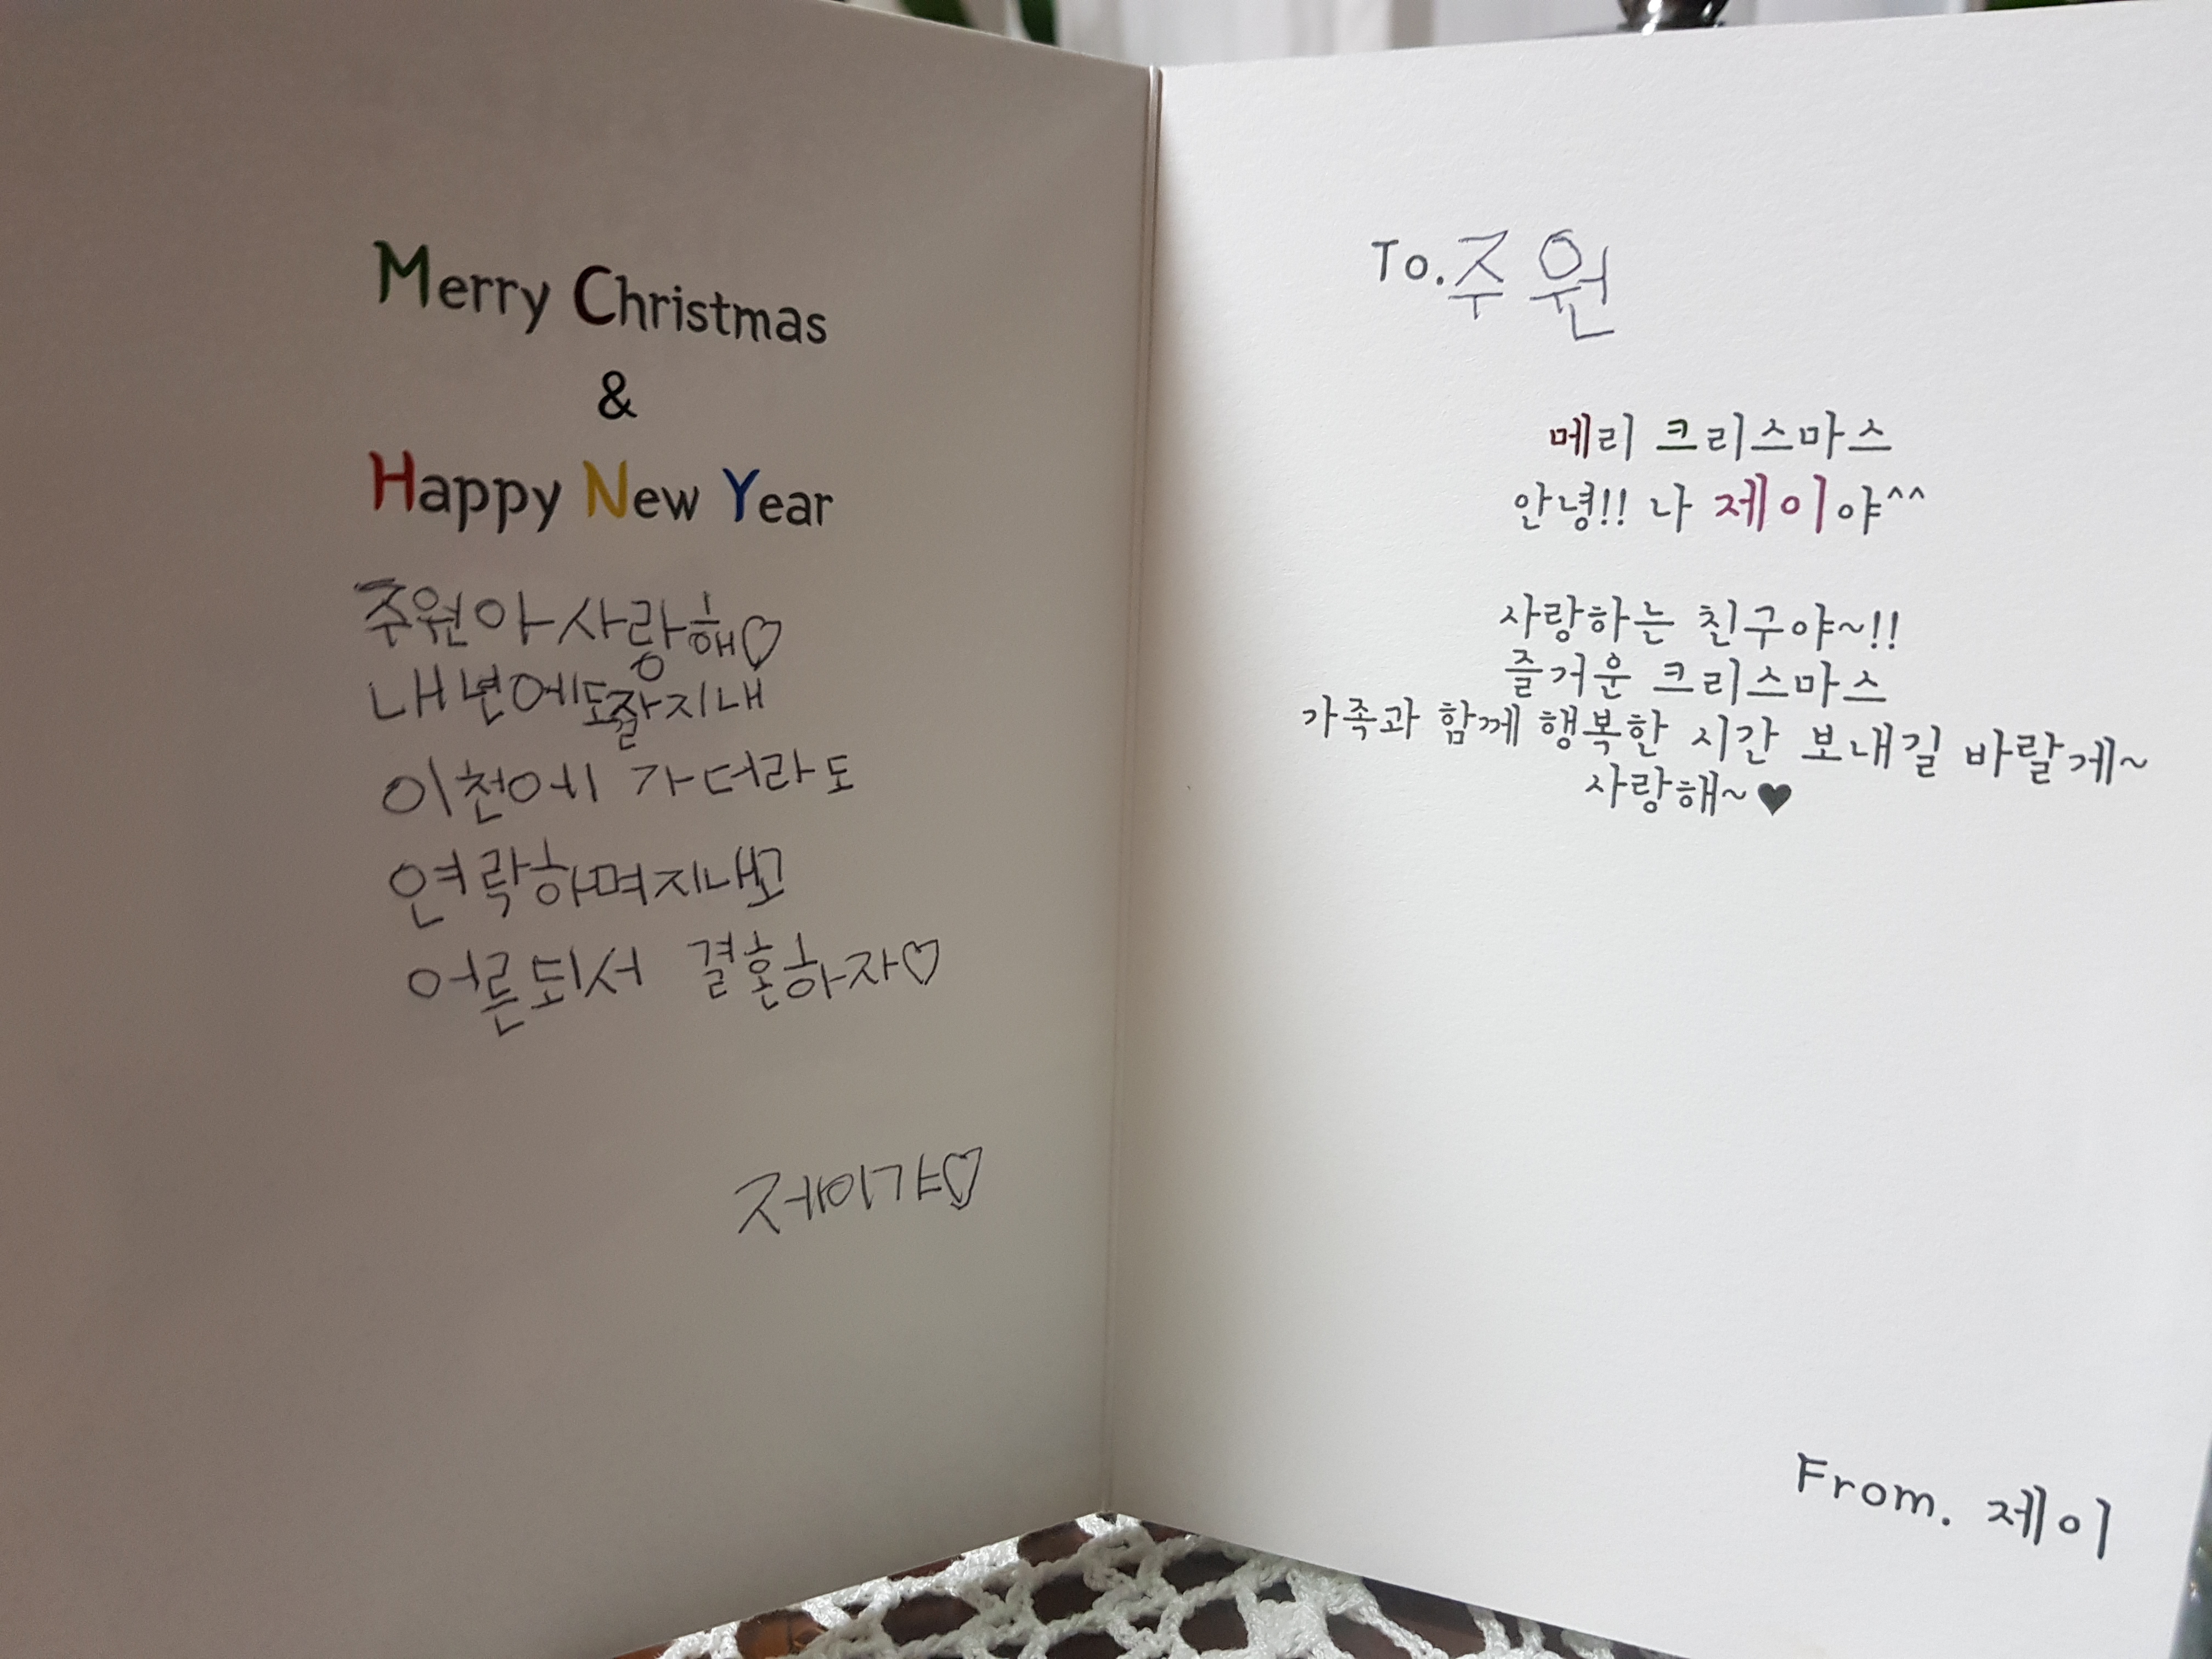 Merry Christmas
&
Happy New Year
주원아 사랑해♡
내년에도 잘지내
이천에 가더라도
연락하며지내고
어른되서 결혼하자♡
제이가♡
To. 주원
메리 크리스마스
안녕!! 나 제이야^^
사랑하는 친구야~!!
즐거운 크리스마스
가족과 함께 행복한 시간 보내길 바랄게~
사랑해~♥
From. 제이